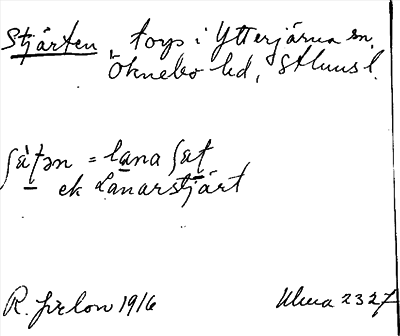 Stjärten, torp i Ytterjärna sn,
Öknebo hd, Sthms l.
ʃä̀ʈən = lana ʃäʈ
ek Lanarstjärt
R. 1916
Ulma 2327